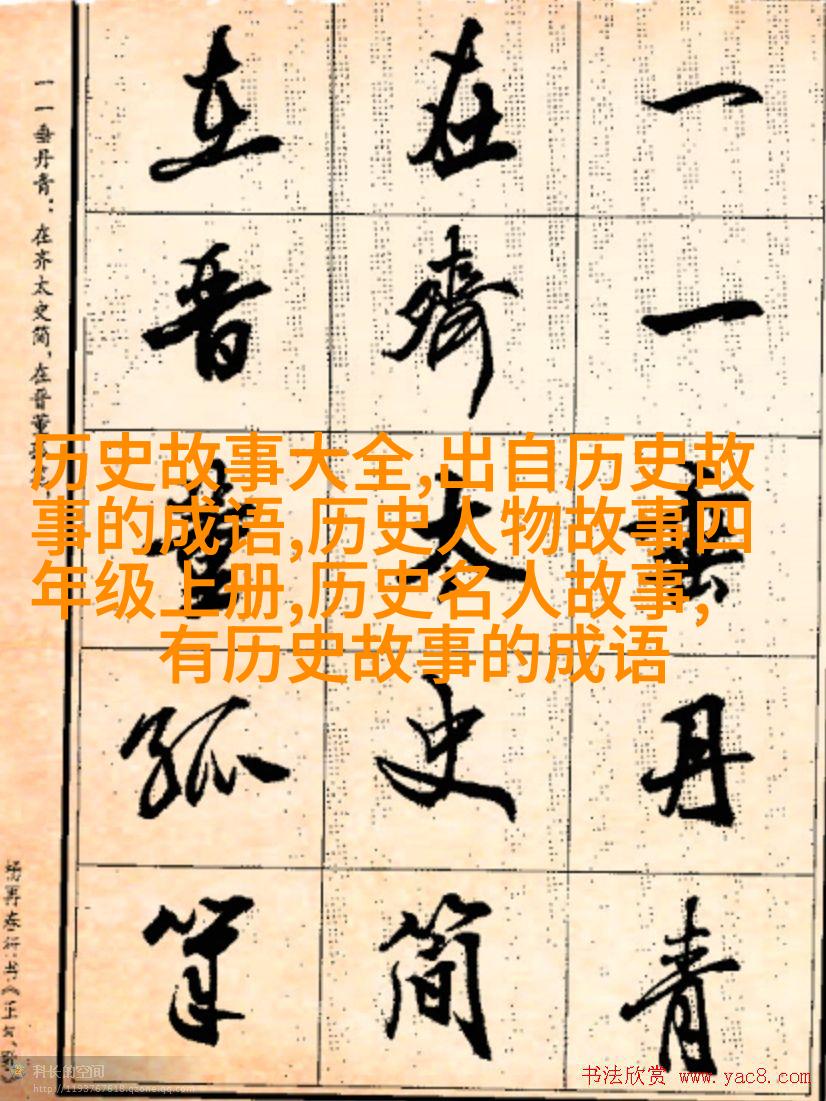 一一垂丹青
在齊太史简
在晋董狐筆
一一垂丹青：在齐太史简，在晋董
杨再春行书《正气
历史故事大全,出自历史故
事的成语,历史人物故事四
年级上册,历史名人故事,
有历史故事的成语
科长的空间
http://1193767618.qzone.qq.com
书法欣赏 www.yac8.com